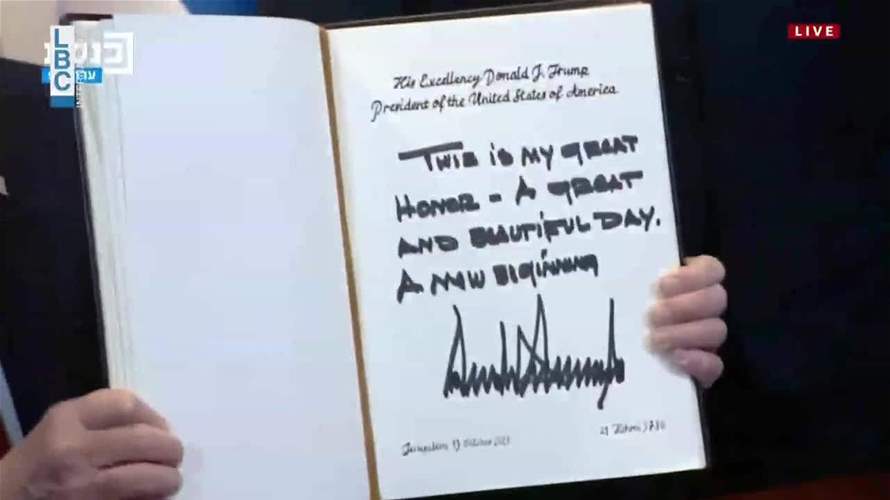 LIVE
כנסת
LBC
His Excellency Donald J. Trump
President of the United States of America
THIS IS MY GREAT
HONOR - A GREAT
AND BEAUTIFUL DAY.
A NEW BEGINNING
Jerusalem 13 October 2025
21 Tishrei 5786